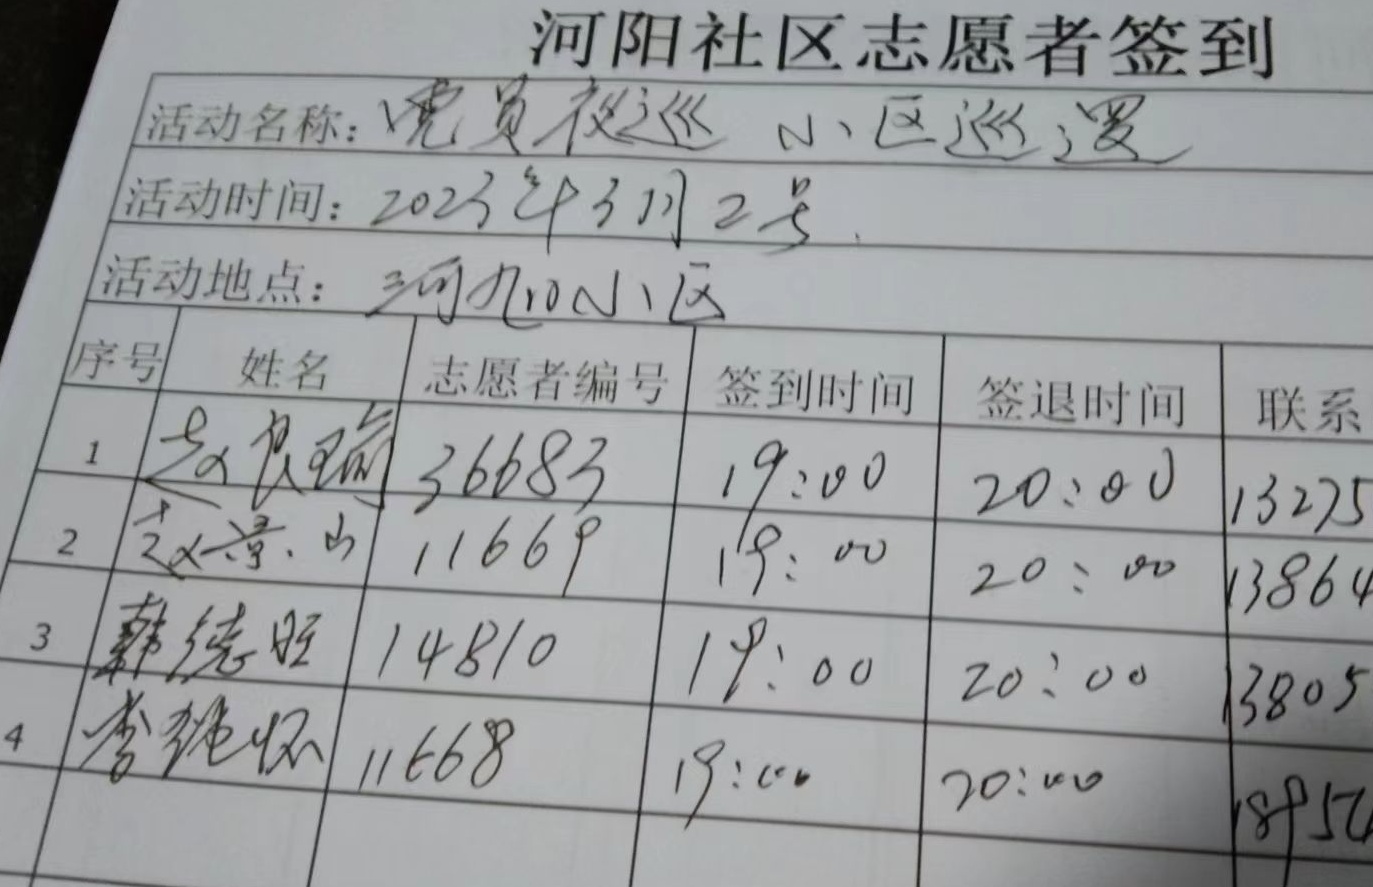 河阳社区志愿者签到
活动名称: 党员夜巡 小区巡逻
活动时间: 2023年3月2号.
活动地点: 河阳小区
序号 姓名 志愿者编号 签到时间 签退时间 联系
1 赵良瑜 36683 19:00 20:00 13275
2 赵景山 11669 19:00 20:00 13864
3 韩德旺 14810 19:00 20:00 13805
4 李继怀 11668 19:00 20:00 1895